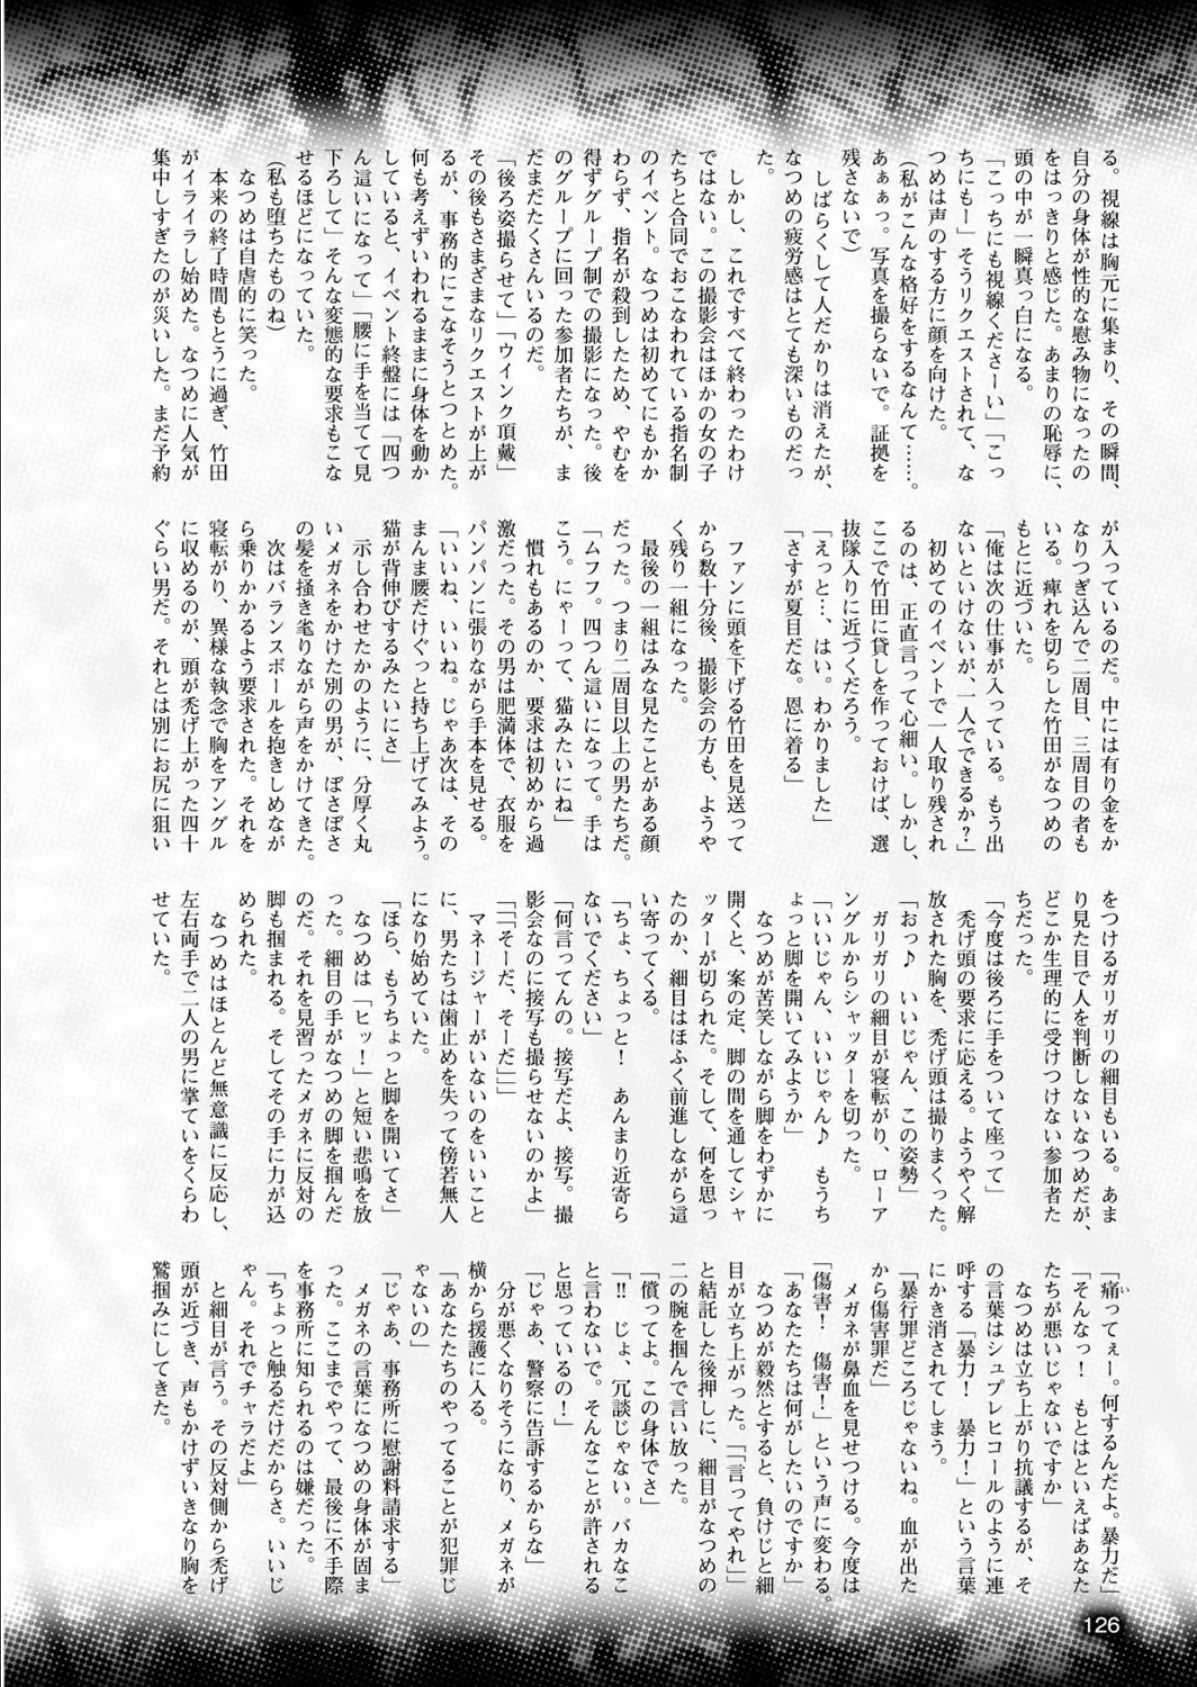 る。視線は胸元に集まり、その瞬間、
自分の身体が性的な慰み物になったの
をはっきりと感じた。あまりの恥辱に、
頭の中が一瞬真っ白になる。
「こっちにも視線くださーい」「こっ
ちにもー」そうリクエストされて、な
つめは声のする方に顔を向けた。
（私がこんな格好をするなんて……。
あぁぁっ。写真を撮らないで。証拠を
残さないで）
しばらくして人だかりは消えたが、
なつめの疲労感はとても深いものだっ
た。
しかし、これですべて終わったわけ
ではない。この撮影会はほかの女の子
たちと合同でおこなわれている指名制
のイベント。なつめは初めてにもかか
わらず、指名が殺到したため、やむを
得ずグループ制での撮影になった。後
のグループに回った参加者たちが、ま
だまだたくさんいるのだ。
「後ろ姿撮らせて」「ウインク頂戴」
その後もさまざまなリクエストが上が
るが、事務的にこなそうとつとめた。
何も考えずいわれるままに身体を動か
していると、イベント終盤には「四つ
ん這いになって」「腰に手を当てて見
下ろして」そんな変態的な要求もこな
せるほどになっていた。
（私も堕ちたものね）
なつめは自虐的に笑った。
本来の終了時間もとうに過ぎ、竹田
がイライラし始めた。なつめに人気が
集中しすぎたのが災いした。まだ予約
が入っているのだ。中には有り金をか
なりつぎ込んで二周目、三周目の者も
いる。痺れを切らした竹田がなつめの
もとに近づいた。
「俺は次の仕事が入っている。もう出
ないといけないが、一人でできるか？」
初めてのイベントで一人取り残され
るのは、正直言って心細い。しかし、
ここで竹田に貸しを作っておけば、選
抜隊入りに近づくだろう。
「えっと…、はい。わかりました」
「さすが夏目だな。恩に着る」
ファンに頭を下げる竹田を見送って
から数十分後、撮影会の方も、ようや
く残り一組になった。
最後の一組はみな見たことがある顔
だった。つまり二周目以上の男たちだ。
「ムフフ。四つん這いになって。手は
こう。にゃーって、猫みたいにね」
慣れもあるのか、要求は初めから過
激だった。その男は肥満体で、衣服を
パンパンに張りながら手本を見せる。
「いいね、いいね。じゃあ次は、その
まんま腰だけぐっと持ち上げてみよう。
猫が背伸びするみたいにさ」
示し合わせたかのように、分厚く丸
いメガネをかけた別の男が、ぼさぼさ
の髪を掻き毟りながら声をかけてきた。
次はバランスボールを抱きしめなが
ら乗りかかるよう要求された。それを
寝転がり、異様な執念で胸をアングル
に収めるのが、頭が禿げ上がった四十
ぐらい男だ。それとは別にお尻に狙い
をつけるガリガリの細目もいる。あま
り見た目で人を判断しないなつめだが、
どこか生理的に受けつけない参加者た
ちだった。
「今度は後ろに手をついて座って」
禿げ頭の要求に応える。ようやく解
放された胸を、禿げ頭は撮りまくった。
「おっ♪　いいじゃん、この姿勢」
ガリガリの細目が寝転がり、ローア
ングルからシャッターを切った。
「いいじゃん、いいじゃん♪　もうち
ょっと脚を開いてみようか」
なつめが苦笑しながら脚をわずかに
開くと、案の定、脚の間を通してシャ
ッターが切られた。そして、何を思っ
たのか、細目はほふく前進しながら這
い寄ってくる。
「ちょ、ちょっと！　あんまり近寄ら
ないでください」
「何言ってんの。接写だよ、接写。撮
影会なのに接写も撮らせないのかよ」
「「「そーだ、そーだ」」」
マネージャーがいないのをいいこと
に、男たちは歯止めを失って傍若無人
になり始めていた。
「ほら、もうちょっと脚を開いてさ」
なつめは「ヒッ！」と短い悲鳴を放
った。細目の手がなつめの脚を掴んだ
のだ。それを見習ったメガネに反対の
脚も掴まれる。そしてその手に力が込
められた。
なつめはほとんど無意識に反応し、
左右両手で二人の男に掌ていをくらわ
せていた。
「痛ってぇー。何するんだよ。暴力だ」
「そんなっ！　もとはといえばあなた
たちが悪いじゃないですか」
なつめは立ち上がり抗議するが、そ
の言葉はシュプレヒコールのように連
呼する「暴力！　暴力！」という言葉
にかき消されてしまう。
「暴行罪どころじゃないね。血が出た
から傷害罪だ」
メガネが鼻血を見せつける。今度は
「傷害！　傷害！」という声に変わる。
「あなたたちは何がしたいのですか」
なつめが毅然とすると、負けじと細
目が立ち上がった。「「言ってやれ」」
と結託した後押しに、細目がなつめの
二の腕を掴んで言い放った。
「償ってよ。この身体でさ」
「!!　じょ、冗談じゃない。バカなこ
と言わないで。そんなことが許される
と思っているの！」
「じゃあ、警察に告訴するからな」
分が悪くなりそうになり、メガネが
横から援護に入る。
「あなたたちのやってることが犯罪じ
ゃないの」
「じゃあ、事務所に慰謝料請求する」
メガネの言葉になつめの身体が固ま
った。ここまでやって、最後に不手際
を事務所に知られるのは嫌だった。
「ちょっと触るだけだからさ。いいじ
ゃん。それでチャラだよ」
と細目が言う。その反対側から禿げ
頭が近づき、声もかけずいきなり胸を
鷲掴みにしてきた。
126